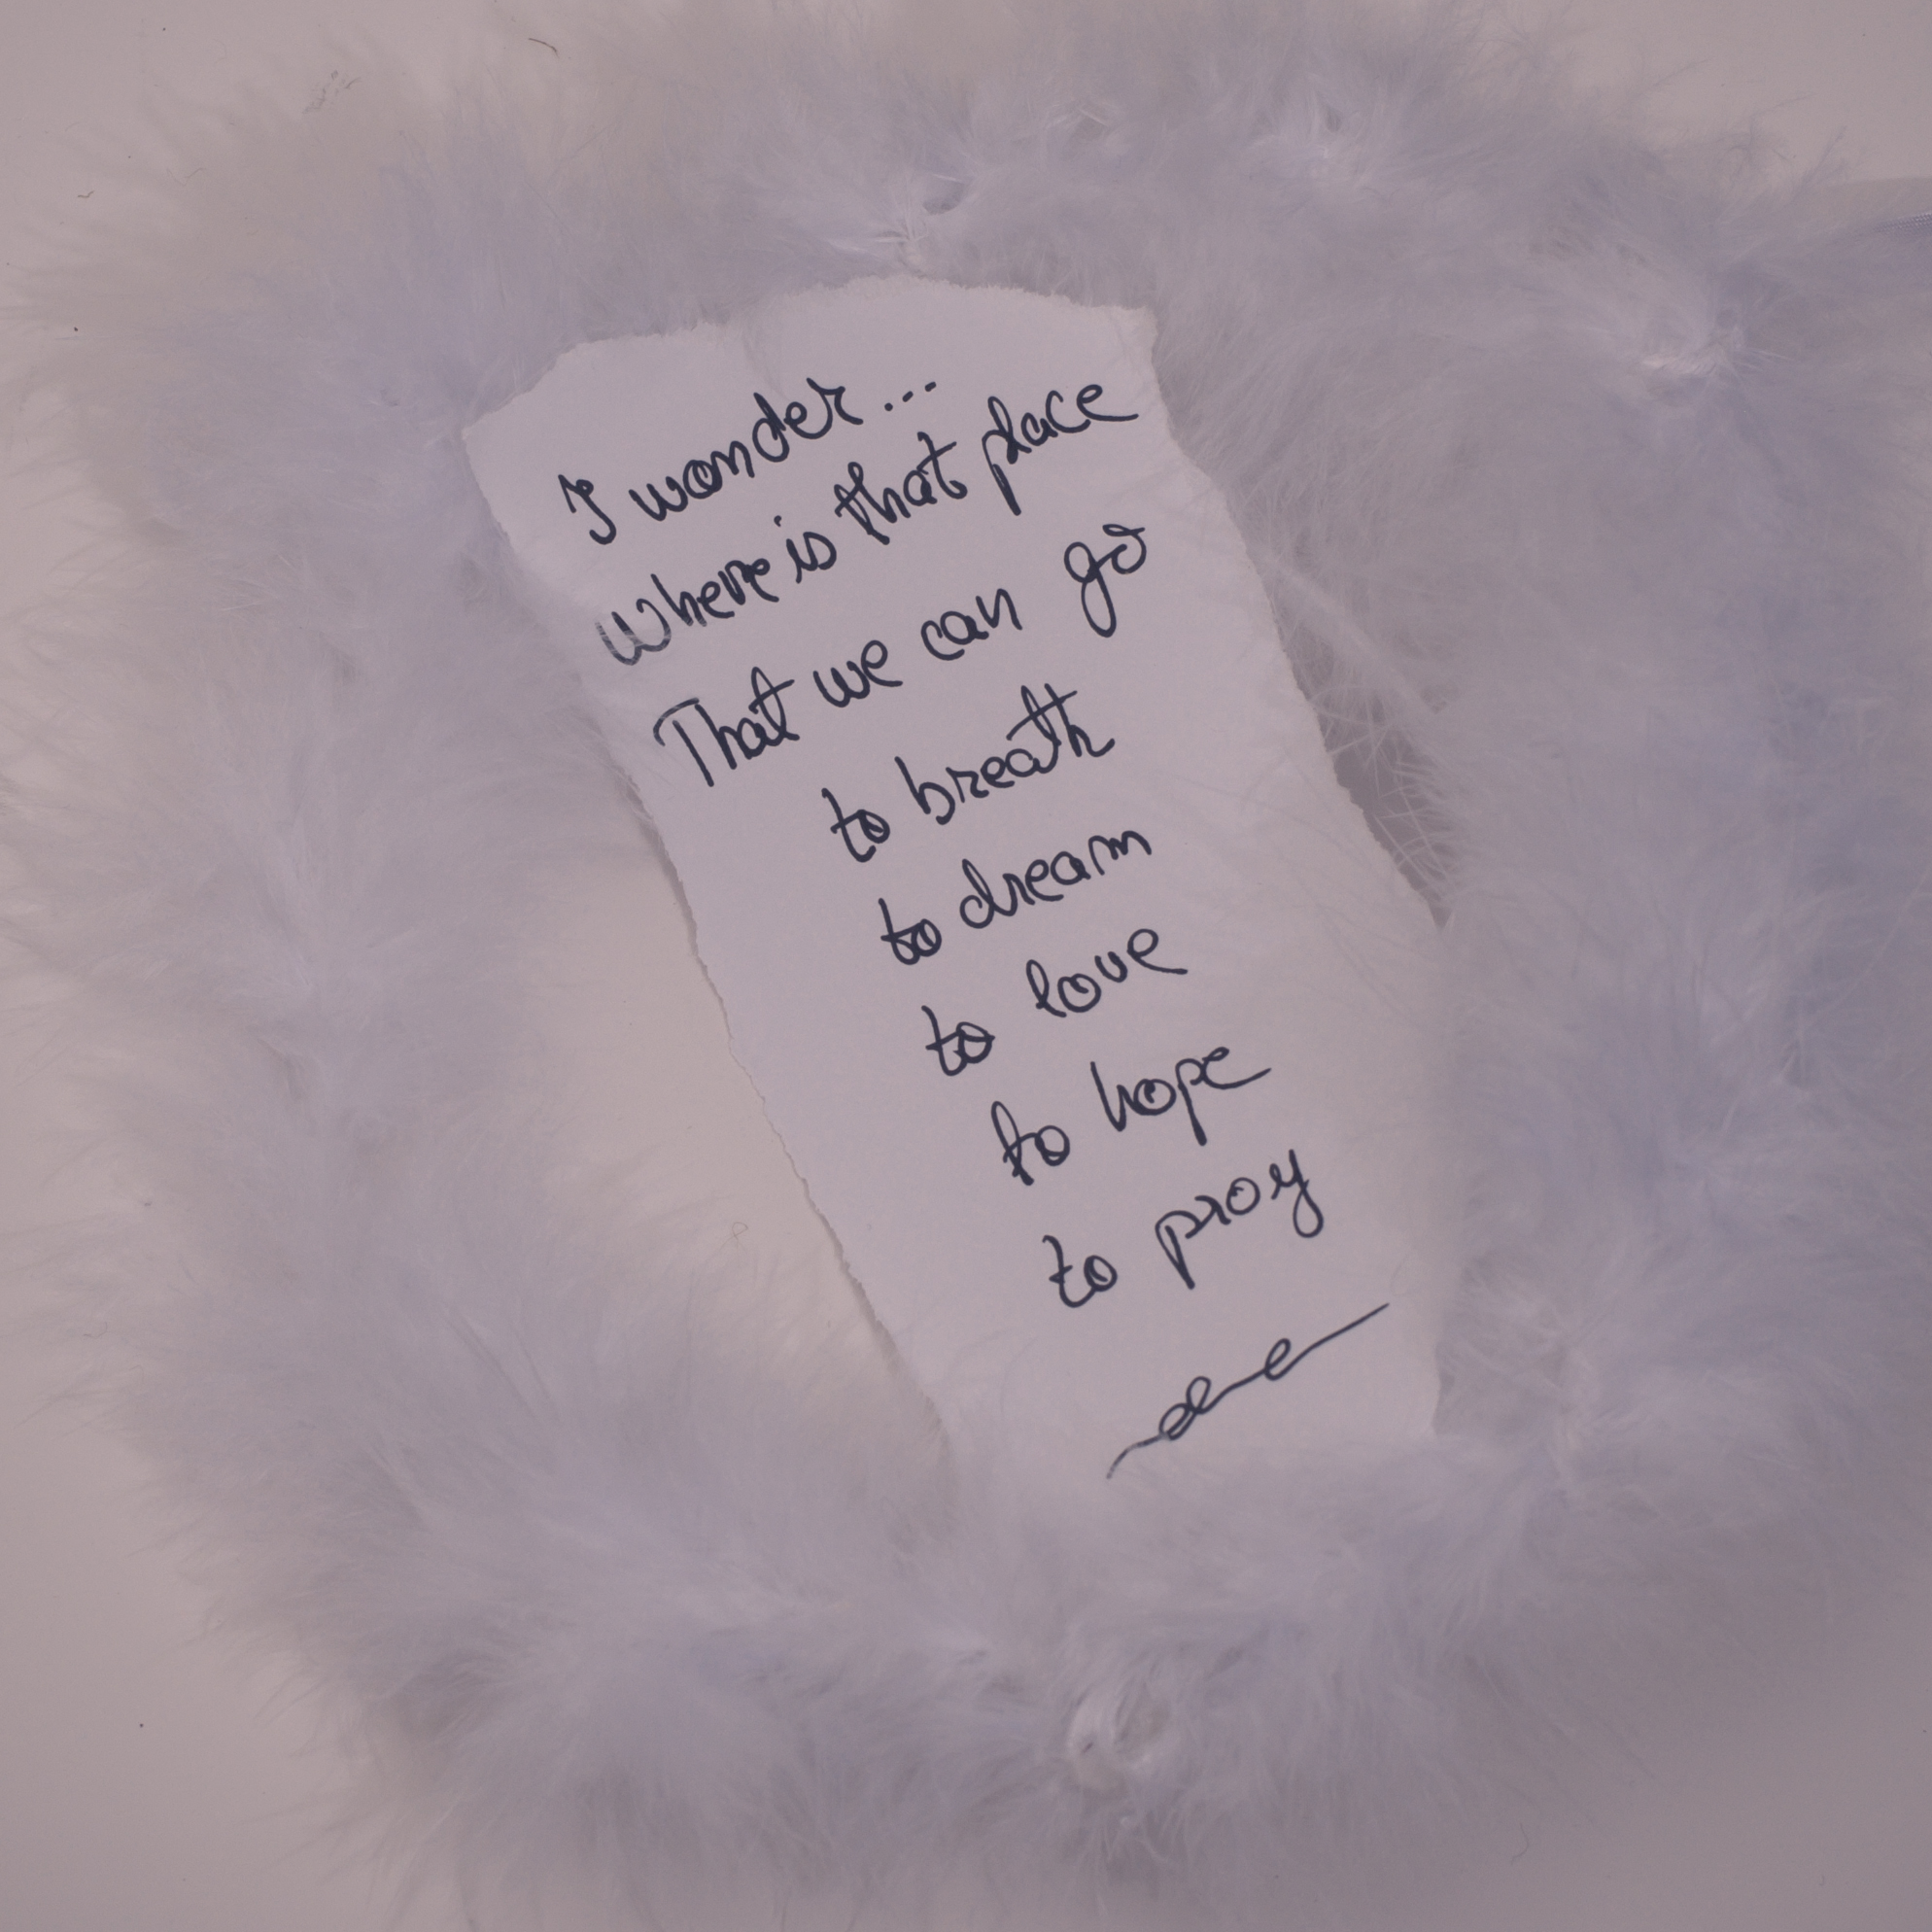 I wonder...
where is that place
That we can go
to breath
to dream
to love
to hope
to pray